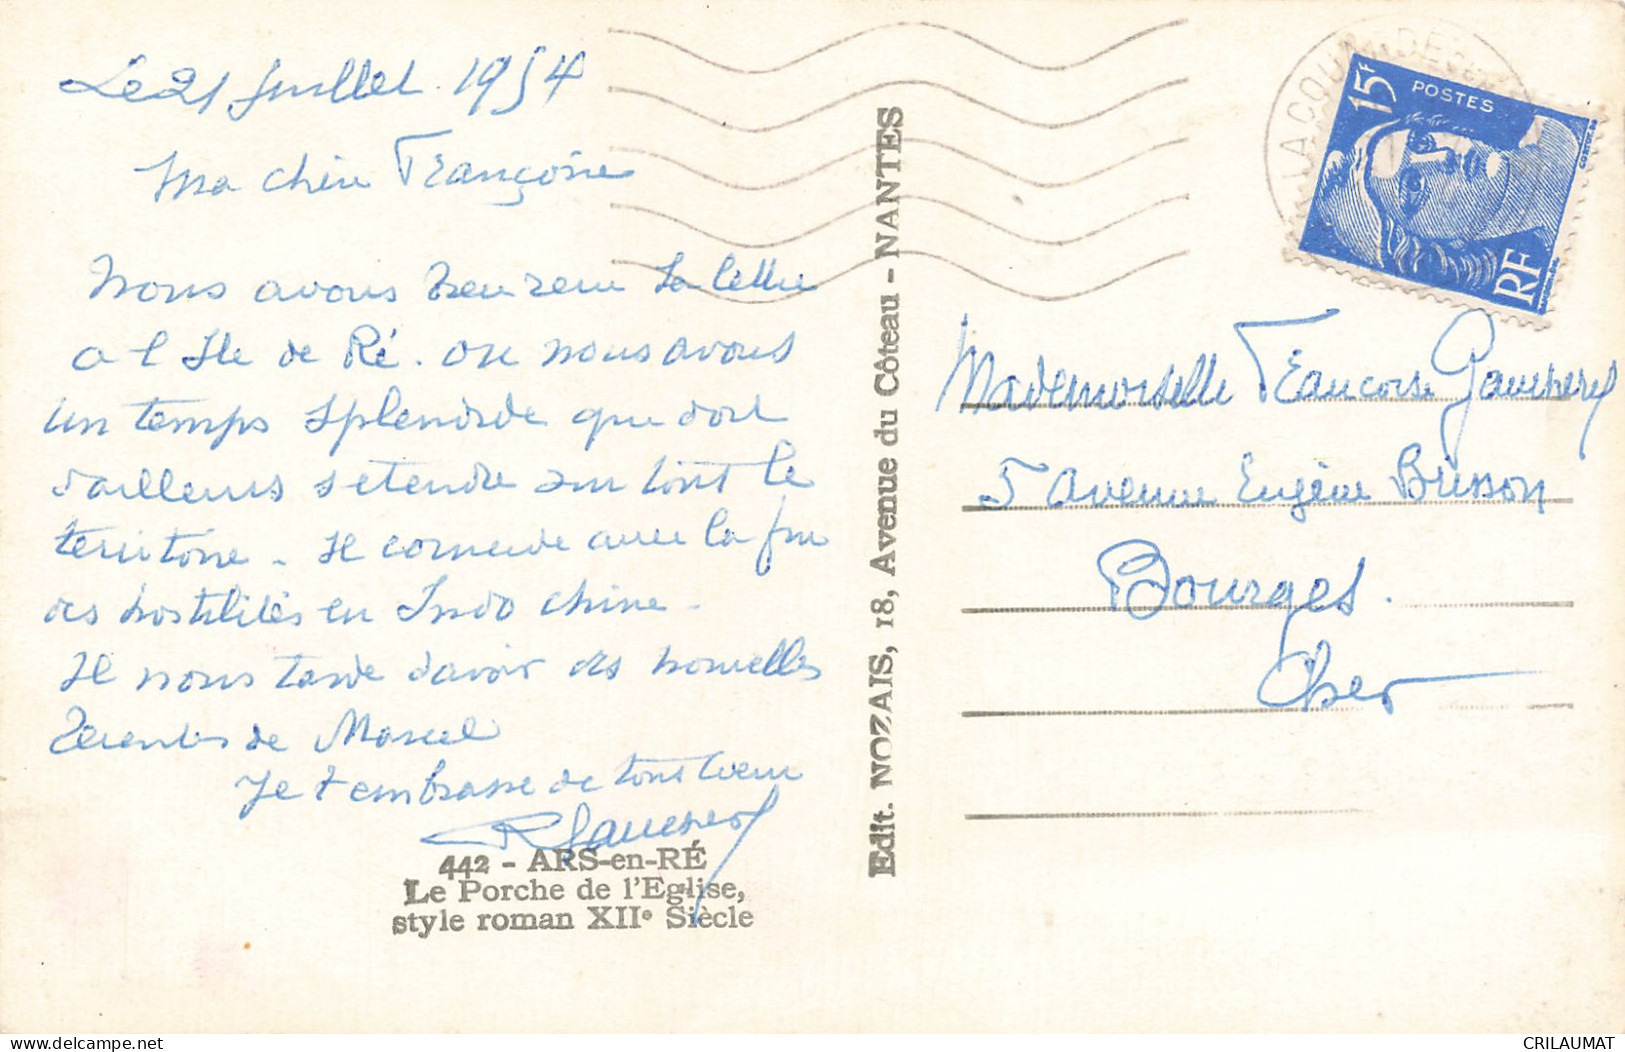 Le 21 Juillet 1954
Ma chère Françoise
Nous avons bien reçu ta lettre
a l Ile de Ré. ou nous avons
un temps splendide qui doit
d'ailleurs s etendre sur tout le
territoire - Il coincide avec la fin
des hostilités en Indo chine -
Il nous tarde d'avoir des nouvelles
récentes de Marcel
Je t embrasse de tout coeur
442 - ARS-en-RÉ
Le Porche de l'Eglise,
style roman XIIe Siècle
Edit. NOZAIS, 18, Avenue du Côteau - NANTES
LACOUR
15f
POSTES
RF
Mademoiselle Françoise
5 Avenue Eugène Brisson
Bourges.
Cher
delcampe.net
CRILAUMAT